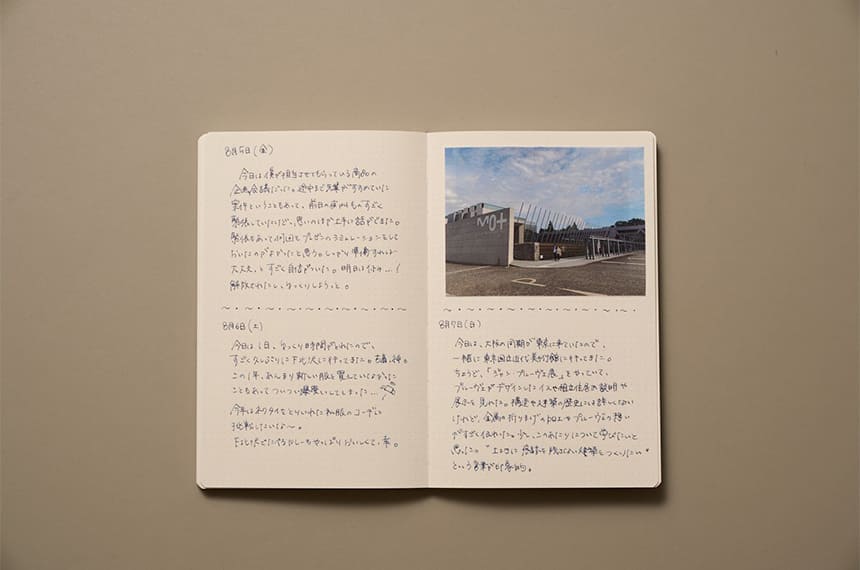 8月5日(金)
今日は僕が担当させてもらっている商品の
企画会議だった。途中まで先輩がすすめていた
案件ということもあって、前日の夜からものすごく
緊張していたけど、思いのほか上手に話ができた。
緊張もあって何回もプレゼンのシミュレーションをして
おいたのがよかったと思う。しっかり準備すれば
大丈夫、とすごく自信がついた。明日は休み…!
解放されたし、ゆっくりしようっと。
8月6日(土)
今日は1日、ゆっくり時間がとれたので、
すごく久しぶりに下北沢に行ってきた。古着、神。
この1年、あんまり新しい服を買えていなかった
こともあってついつい爆買いしてしまった…
今年はネクタイをとりいれた私服のコーデに
挑戦したいな〜。
下北沢でたべたカレーもやっぱりおいしくて、幸。
MOt
8月7日(日)
今日は、大阪の同期が東京に来ていたので、
一緒に東京国立近代美術館に行ってきた。
ちょうど、「ジャン・プルーヴェ展」をやっていて、
プルーヴェがデザインしたイスや組立住宅の説明や
展示を見れた。構造や建築の歴史には詳しくない
けれど、金属の折りまげの加工やプルーヴェの想い
がすごく伝わった。少し、このあたりについて学びたいと
思った。"土地に痕跡を残さない建築をつくりたい"
という言葉が印象的。